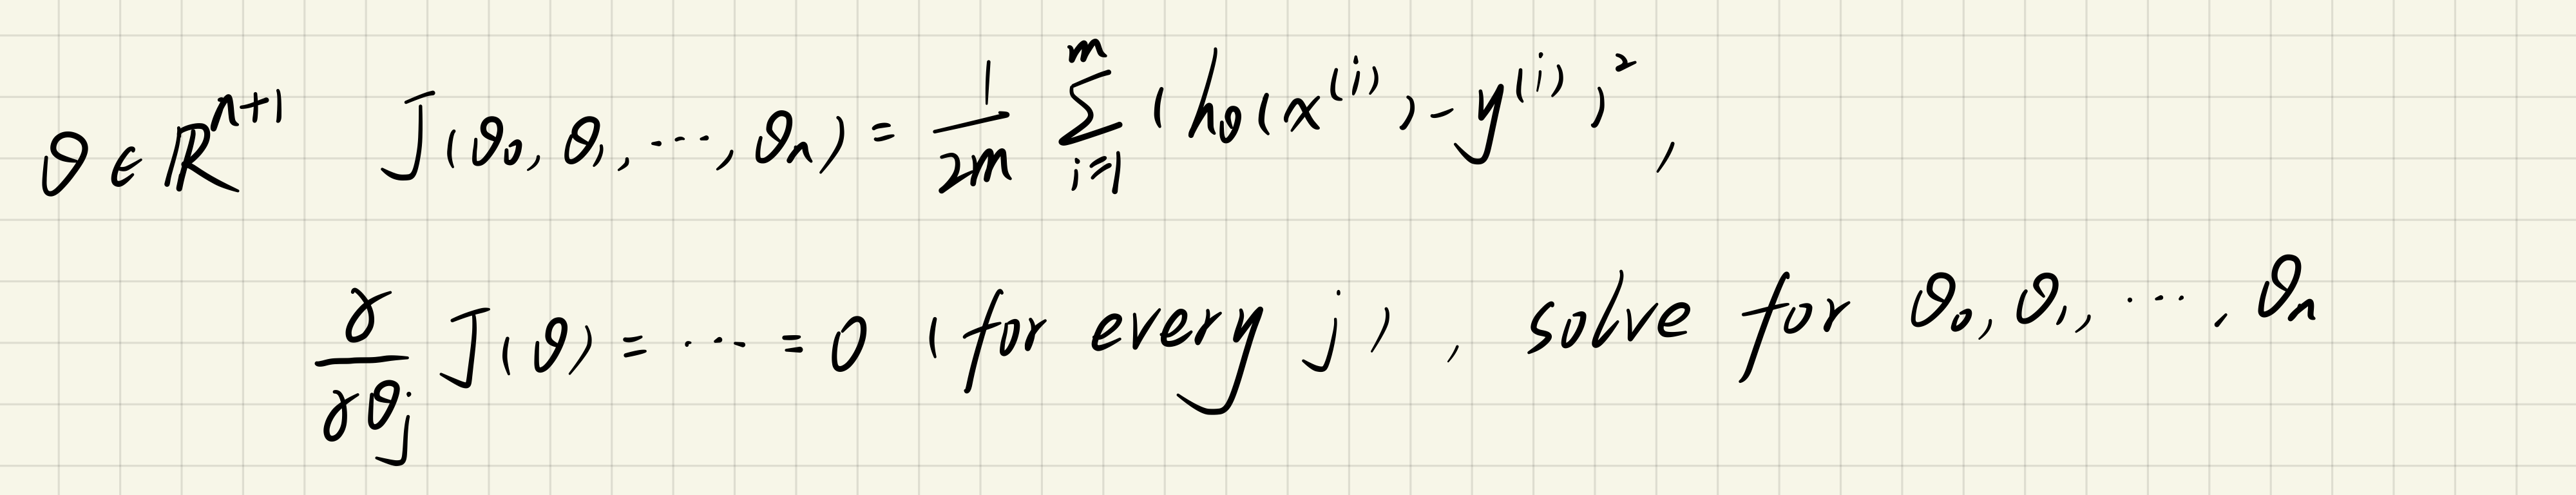 θ ∈ ℝ^{n+1} J(θ₀, θ₁, ⋯, θₙ) = \frac{1}{2m} \sum_{i=1}^{m} (h_θ(x^{(i)}) - y^{(i)})²,
\frac{∂}{∂θ_j} J(θ) = ⋯ = 0 (for every j), solve for θ₀, θ₁, ⋯, θₙ